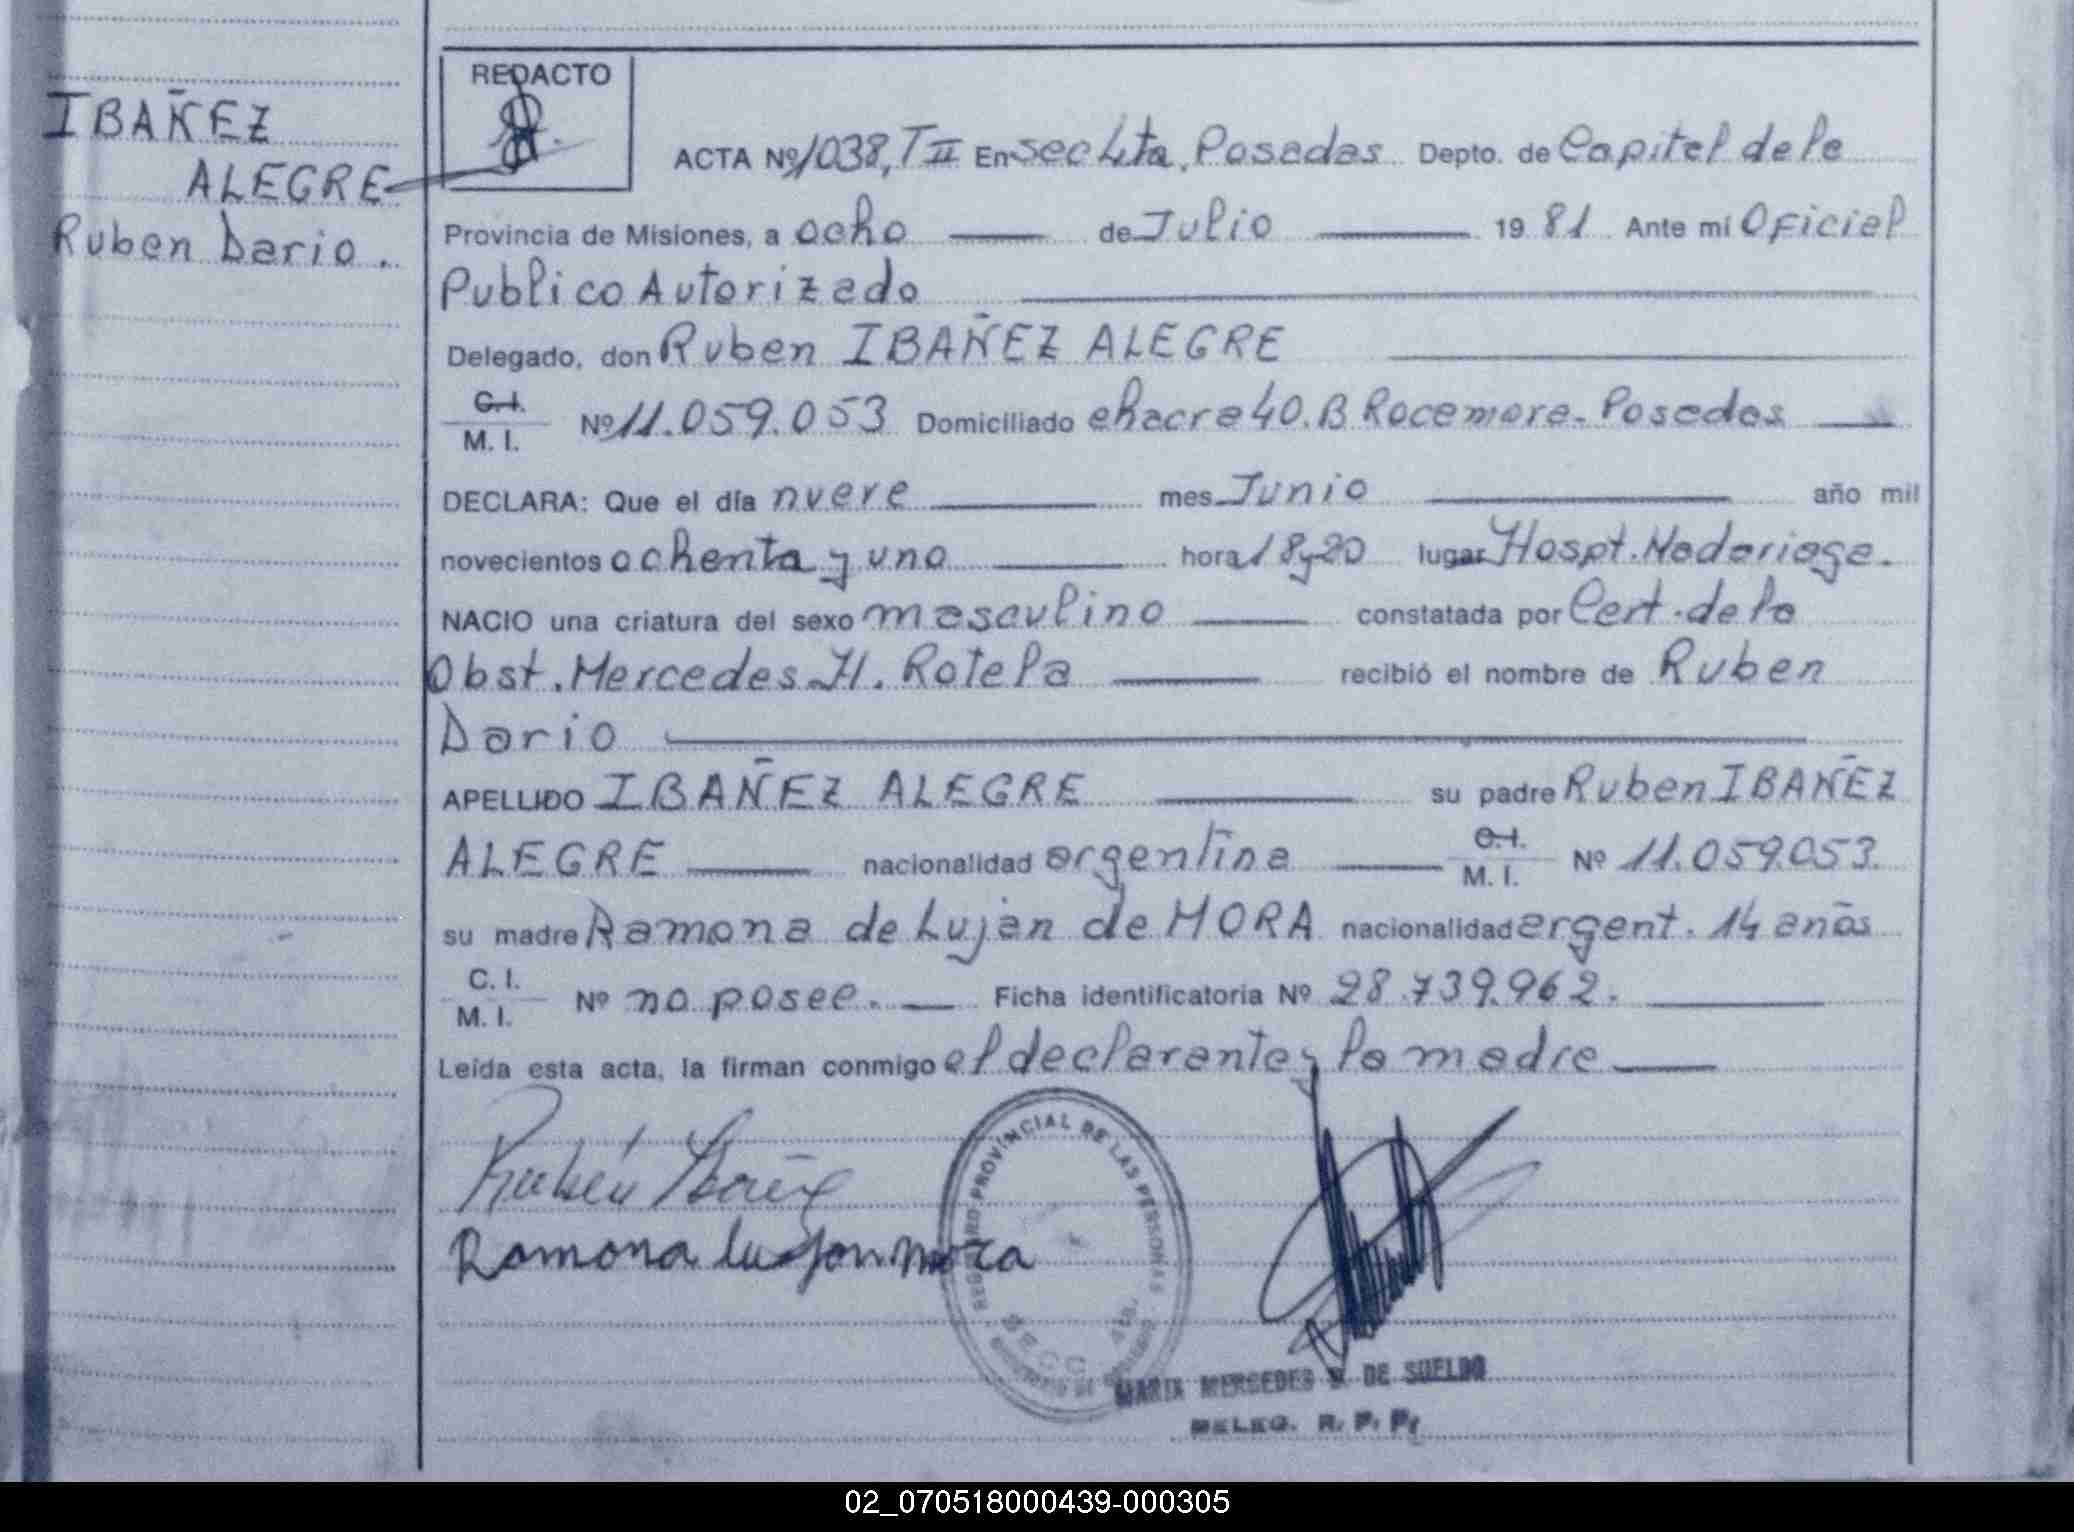 IBAÑEZ
ALEGRE
Ruben Dario.
REDACTO
ACTA Nº 1038, T II En sec 4ta, Posadas Depto. de Capital de la
Provincia de Misiones, a ocho de Julio 19 81 Ante mi Oficial
Publico Autorizado
Delegado, don Ruben IBAÑEZ ALEGRE
C.I.
M. I. Nº 11.059.053 Domiciliado chacra 40. B Rocamora - Posadas
DECLARA: Que el día nueve mes Junio año mil
novecientos ochenta y uno hora 18y20 lugar Hospt. Madariaga.
NACIO una criatura del sexo masculino constatada por Cert. de la
Obst. Mercedes H. Rotela recibió el nombre de Ruben
Dario
APELLIDO IBAÑEZ ALEGRE su padre Ruben IBAÑEZ
ALEGRE nacionalidad argentina C.I. M. I. Nº 11.059.053.
su madre Ramona de Luján de MORA nacionalidad argent. 14 años
C. I.
M. I. Nº no posee. Ficha identificatoria Nº 28.739.962.
Leída esta acta, la firman conmigo el declarante y la madre
Rubén Ibañez
Ramona lujan mora
REGISTRO PROVINCIAL DE LAS PERSONAS
SECC 4ta.
MARIA MERCEDES DE SUELDO
DELEG. R. P. P.
02_070518000439-000305